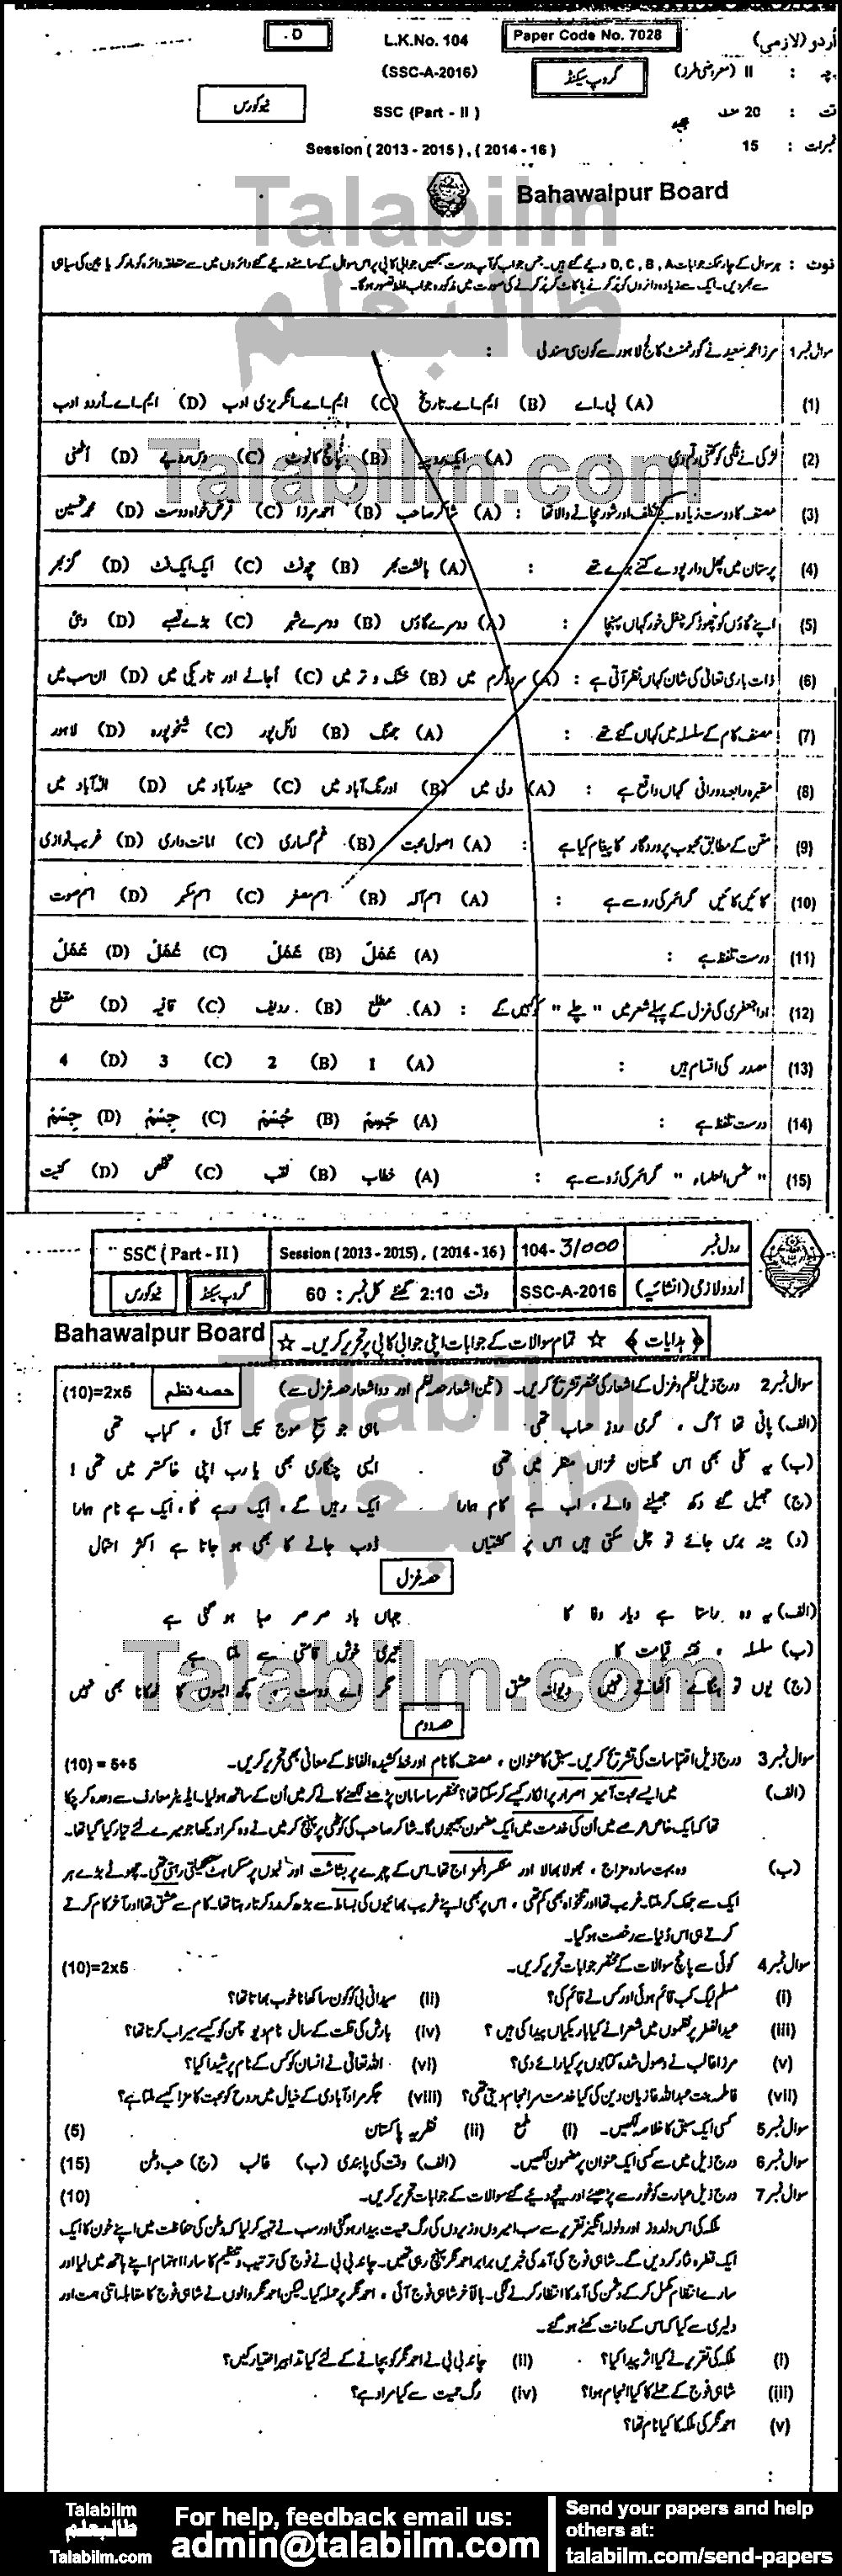 D
L.K.No. 104
Paper Code No. 7028
اُردو (لازمی)
(SSC-A-2016)
گروپ سیکنڈ
II (معروضی طرز) :
نیو کورس
SSC (Part - II)
20 منٹ :
Session (2013 - 2015), (2014 - 16)
15 : نمبرات
Bahawalpur Board
نوٹ : ہر سوال کے چار ممکنہ جوابات D, C, B, A دیئے گئے ہیں۔ جس جواب کو آپ درست سمجھیں جوابی کاپی پر اس سوال کے سامنے دیئے گئے دائروں میں سے متعلقہ دائرہ کو مارکر یا پین کی سیاہی
سے بھر دیں۔ ایک سے زیادہ دائروں کو پُر کرنے یا کاٹ کر پُر کرنے کی صورت میں مذکورہ جواب غلط تصور ہوگا۔
سوال نمبر 1 مرزا محمد سعید نے گورنمنٹ کالج لاہور سے کون سی سند لی :
(1) (A) بی۔اے (B) ایم۔اے۔تاریخ (C) ایم۔اے۔انگریزی ادب (D) ایم۔اے۔اُردو ادب
(2) لڑکی نے قلی کو کتنی رقم دی : (A) ایک روپیہ (B) پانچ کا نوٹ (C) دس روپے (D) اٹھنی
(3) مصنف کا دوست زیادہ بے تکلف اور شور مچانے والا تھا : (A) شاکر صاحب (B) احمد مرزا (C) قرض خواہ دوست (D) محمد تحسین
(4) پرستان میں پھل دار پودے کتنے بڑے تھے : (A) بالشت بھر (B) چھ فٹ (C) ایک ایک فٹ (D) گز بھر
(5) اپنے گاؤں کو چھوڑ کر چغل خور کہاں پہنچا : (A) دوسرے گاؤں (B) دوسرے شہر (C) بڑے قصبے (D) دبئی
(6) ذات باری تعالیٰ کی شان کہاں نظر آتی ہے : (A) سرد و گرم میں (B) خشک و تر میں (C) اُجالے اور تاریکی میں (D) ان سب میں
(7) مصنف کام کے سلسلہ میں کہاں گئے تھے : (A) جھنگ (B) لائل پور (C) شیخوپورہ (D) لاہور
(8) مقبرہ رابعہ دورانی کہاں واقع ہے : (A) دلی میں (B) اورنگ آباد میں (C) حیدرآباد میں (D) الٰہ آباد میں
(9) متن کے مطابق محبوب پروردگار کا پیغام کیا ہے : (A) اصول محبت (B) غم گساری (C) امانت داری (D) غریب نوازی
(10) کائیں کائیں گرائمر کی رو سے ہے : (A) اسم آلہ (B) اسم مصغر (C) اسم مکبر (D) اسم صوت
(11) درست تلفظ ہے : (A) عَمَلْ (B) عَمَلْ (C) عُمَلْ (D) عَمَلْ
(12) ادا جعفری کی غزل کے پہلے شعر میں "چلے" کو کہیں گے : (A) مطلع (B) ردیف (C) قافیہ (D) مقطع
(13) مصدر کی اقسام ہیں : (A) 1 (B) 2 (C) 3 (D) 4
(14) درست تلفظ ہے : (A) جَسِمْ (B) جُسْمْ (C) جِسْمْ (D) جِسَمْ
(15) "شمس العلماء" گرائمر کی رُو سے ہے : (A) خطاب (B) لقب (C) تخلص (D) کنیت
SSC (Part - II) Session (2013 - 2015), (2014 - 16) 104-31000 رول نمبر
نیو کورس گروپ سیکنڈ وقت 2:10 گھنٹے کل نمبر : 60 SSC-A-2016 اُردو لازمی (انشائیہ)
Bahawalpur Board (ہدایات) ☆ تمام سوالات کے جوابات اپنی جوابی کاپی پر تحریر کریں۔ ☆
سوال نمبر 2 درج ذیل نظم و غزل کے اشعار کی مختصر تشریح کریں۔ (تین اشعار حصہ نظم اور دو اشعار حصہ غزل سے) حصہ نظم (10)=2x5
(الف) پانی تھا آگ ، گرمی روز حساب تھی ماہی جو سیخ موج تک آئی ، کباب تھی
(ب) یہ کلی بھی اس گلستان خزاں منظر میں تھی ایسی چنگاری بھی یا رب اپنی خاکستر میں تھی !
(ج) جھیل گئے دکھ جھیلنے والے ، اب ہے کام ہمارا ایک رہیں گے ، ایک رہے گا ، ایک ہے نام ہمارا
(د) مینہ برس جائے تو چل سکتی ہیں اس پر کشتیاں ڈوب جانے کا بھی ہو جاتا ہے اکثر احتمال
حصہ غزل
(الف) یہ وہ راستا ہے دیار وفا کا جہاں باد صرصر صبا ہو گئی ہے
(ب) سلسلہ ، فتنہ قیامت کا تیری خوش قامتی سے ملتا ہے
(ج) یوں تو ہنگامے اُٹھاتے نہیں دیوانہ عشق مگر اے دوست ، کچھ ایسوں کا ٹھکانا بھی نہیں
حصہ دوم
سوال نمبر 3 درج ذیل اقتباسات کی تشریح کریں۔ سبق کا عنوان ، مصنف کا نام اور خط کشیدہ الفاظ کے معانی بھی تحریر کریں۔ (10) = 5+5
(الف) میں ایسے محبت آمیز اصرار پر انکار کیسے کر سکتا تھا؟ مختصر سا سامان پڑھنے لکھنے کا لے کر میں اُن کے ساتھ ہو لیا۔ ایڈیٹر معارف سے وعدہ کر چکا
تھا کہ ایک خاص عرصے میں اُن کی خدمت میں ایک مضمون بھیجوں گا۔ شاکر صاحب کی کوٹھی پر پہنچ کر میں نے وہ کمرا دیکھا جو میرے لئے تیار کیا گیا تھا۔
(ب) وہ بہت سادہ مزاج ، بھولا بھالا اور منکسر المزاج تھا۔ اس کے چہرے پر بشاشت اور لبوں پر مسکراہٹ کھیلتی رہتی تھی۔ چھوٹے بڑے ہر
ایک سے جھک کر ملتا۔ غریب تھا اور تنخواہ بھی کم تھی ، اس پر بھی اپنے غریب بھائیوں کی بساط سے بڑھ کر مدد کرتا رہتا تھا۔ کام سے عشق تھا اور آخر کام کرتے
کرتے ہی اس دُنیا سے رخصت ہو گیا۔
سوال نمبر 4 کوئی سے پانچ سوالات کے مختصر جوابات تحریر کریں۔ (10)=2x5
(i) مسلم لیگ کب قائم ہوئی اور کس نے قائم کی؟ (ii) سیدانی بی کو کون سا کھانا خوب بھاتا تھا؟
(iii) عید الفطر پر نظموں میں شعرا نے کیا باریکیاں پیدا کی ہیں ؟ (iv) بارش کی قلت کے سال نام دیو چمن کو کیسے سیراب کرتا تھا؟
(v) مرزا غالب نے وصول شدہ کتابوں پر کیا رائے دی؟ (vi) اللہ تعالیٰ نے انسان کو کس کے نام پر شیدا کیا؟
(vii) فاطمہ بنت عبداللہ غازیان دین کی کیا خدمت سرانجام دیتی تھی؟ (viii) جگر مراد آبادی کے خیال میں روح کو محبت کا مزا کیسے ملتا ہے؟
سوال نمبر 5 کسی ایک سبق کا خلاصہ لکھیں۔ (i) طمع (ii) نظریہ پاکستان (5)
سوال نمبر 6 درج ذیل میں سے کسی ایک عنوان پر مضمون لکھیں۔ (الف) وقت کی پابندی (ب) غالب (ج) حب وطن (15)
سوال نمبر 7 درج ذیل عبارت کو غور سے پڑھیئے اور نیچے دیئے گئے سوالات کے جوابات تحریر کریں۔ (10)
ملکہ کی اس دلدوز اور ولولہ انگیز تقریر سے سب امیروں وزیروں کی رگ حمیت بیدار ہو گئی اور سب نے تہیہ کر لیا کہ وطن کی حفاظت میں اپنے خون کا ایک
ایک قطرہ نثار کر دیں گے۔ شاہی فوج کی آمد کی خبریں برابر احمد نگر پہنچ رہی تھیں۔ چاند بی بی نے فوج کی ترتیب و تنظیم کا سارا اہتمام اپنے ہاتھ میں لیا اور
سارے انتظام مکمل کر کے دشمن کی آمد کا انتظار کرنے لگی۔ بالآخر شاہی فوج آئی ، احمد نگر پر حملہ کیا۔ لیکن احمد نگر والوں نے شاہی فوج کا مقابلہ اتنی ہمت اور
دلیری سے کیا کہ اس کے دانت کھٹے ہو گئے۔
(i) ملکہ کی تقریر نے کیا اثر پیدا کیا؟ (ii) چاند بی بی نے احمد نگر کو بچانے کے لئے کیا تدابیر اختیار کیں؟
(iii) شاہی فوج کے حملے کا کیا انجام ہوا؟ (iv) رگ حمیت سے کیا مراد ہے؟
(v) احمد نگر کی ملکہ کا کیا نام تھا؟
Talabilm
طالبعلم
Talabilm.com
For help, feedback email us:
admin@talabilm.com
Send your papers and help
others at:
talabilm.com/send-papers